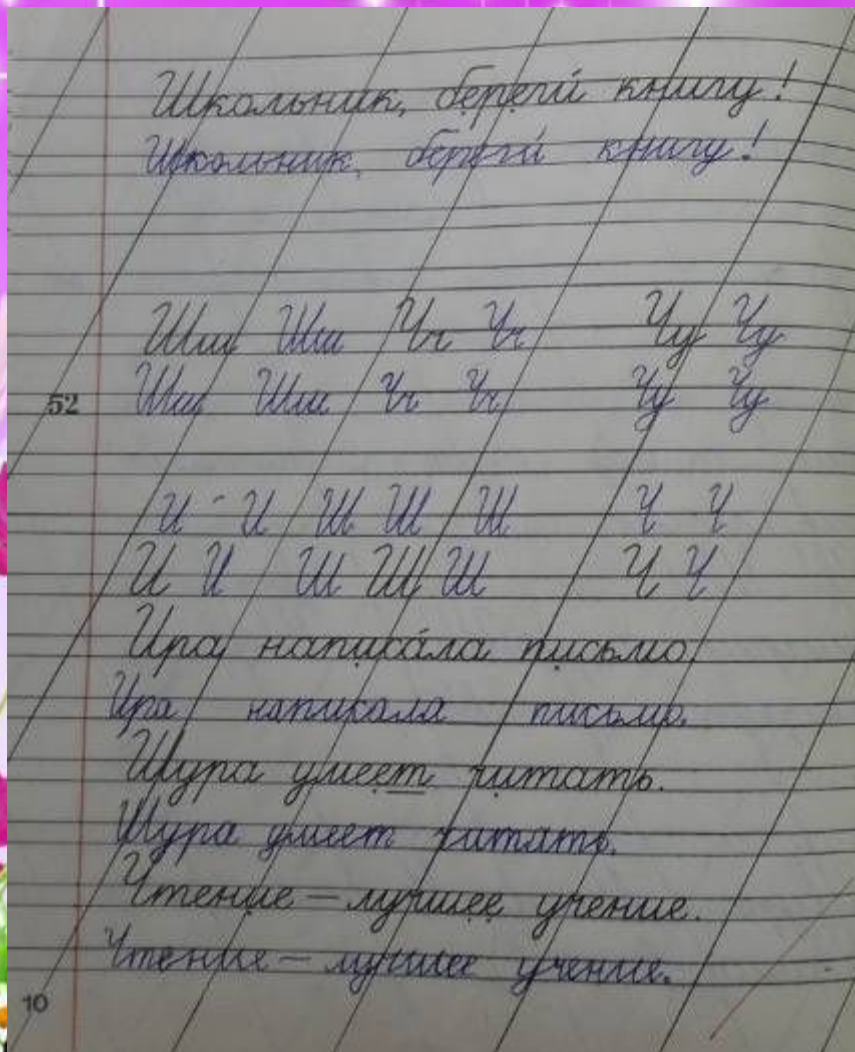 Школьник, береги́ книгу!
Школьник, береги́ книгу!
Шш Шш Чч Чч Чу Чу
52 Шш Шш Чч Чч Чу Чу
И И Ш Ш Ш Ч Ч
И И Ш Ш Ш Ч Ч
Ира написа́ла письмо
Ира написала письмо.
Шура умеет читать.
Шура умеет читать.
Чтение — лучшее учение.
Чтение — лучшее учение.
10